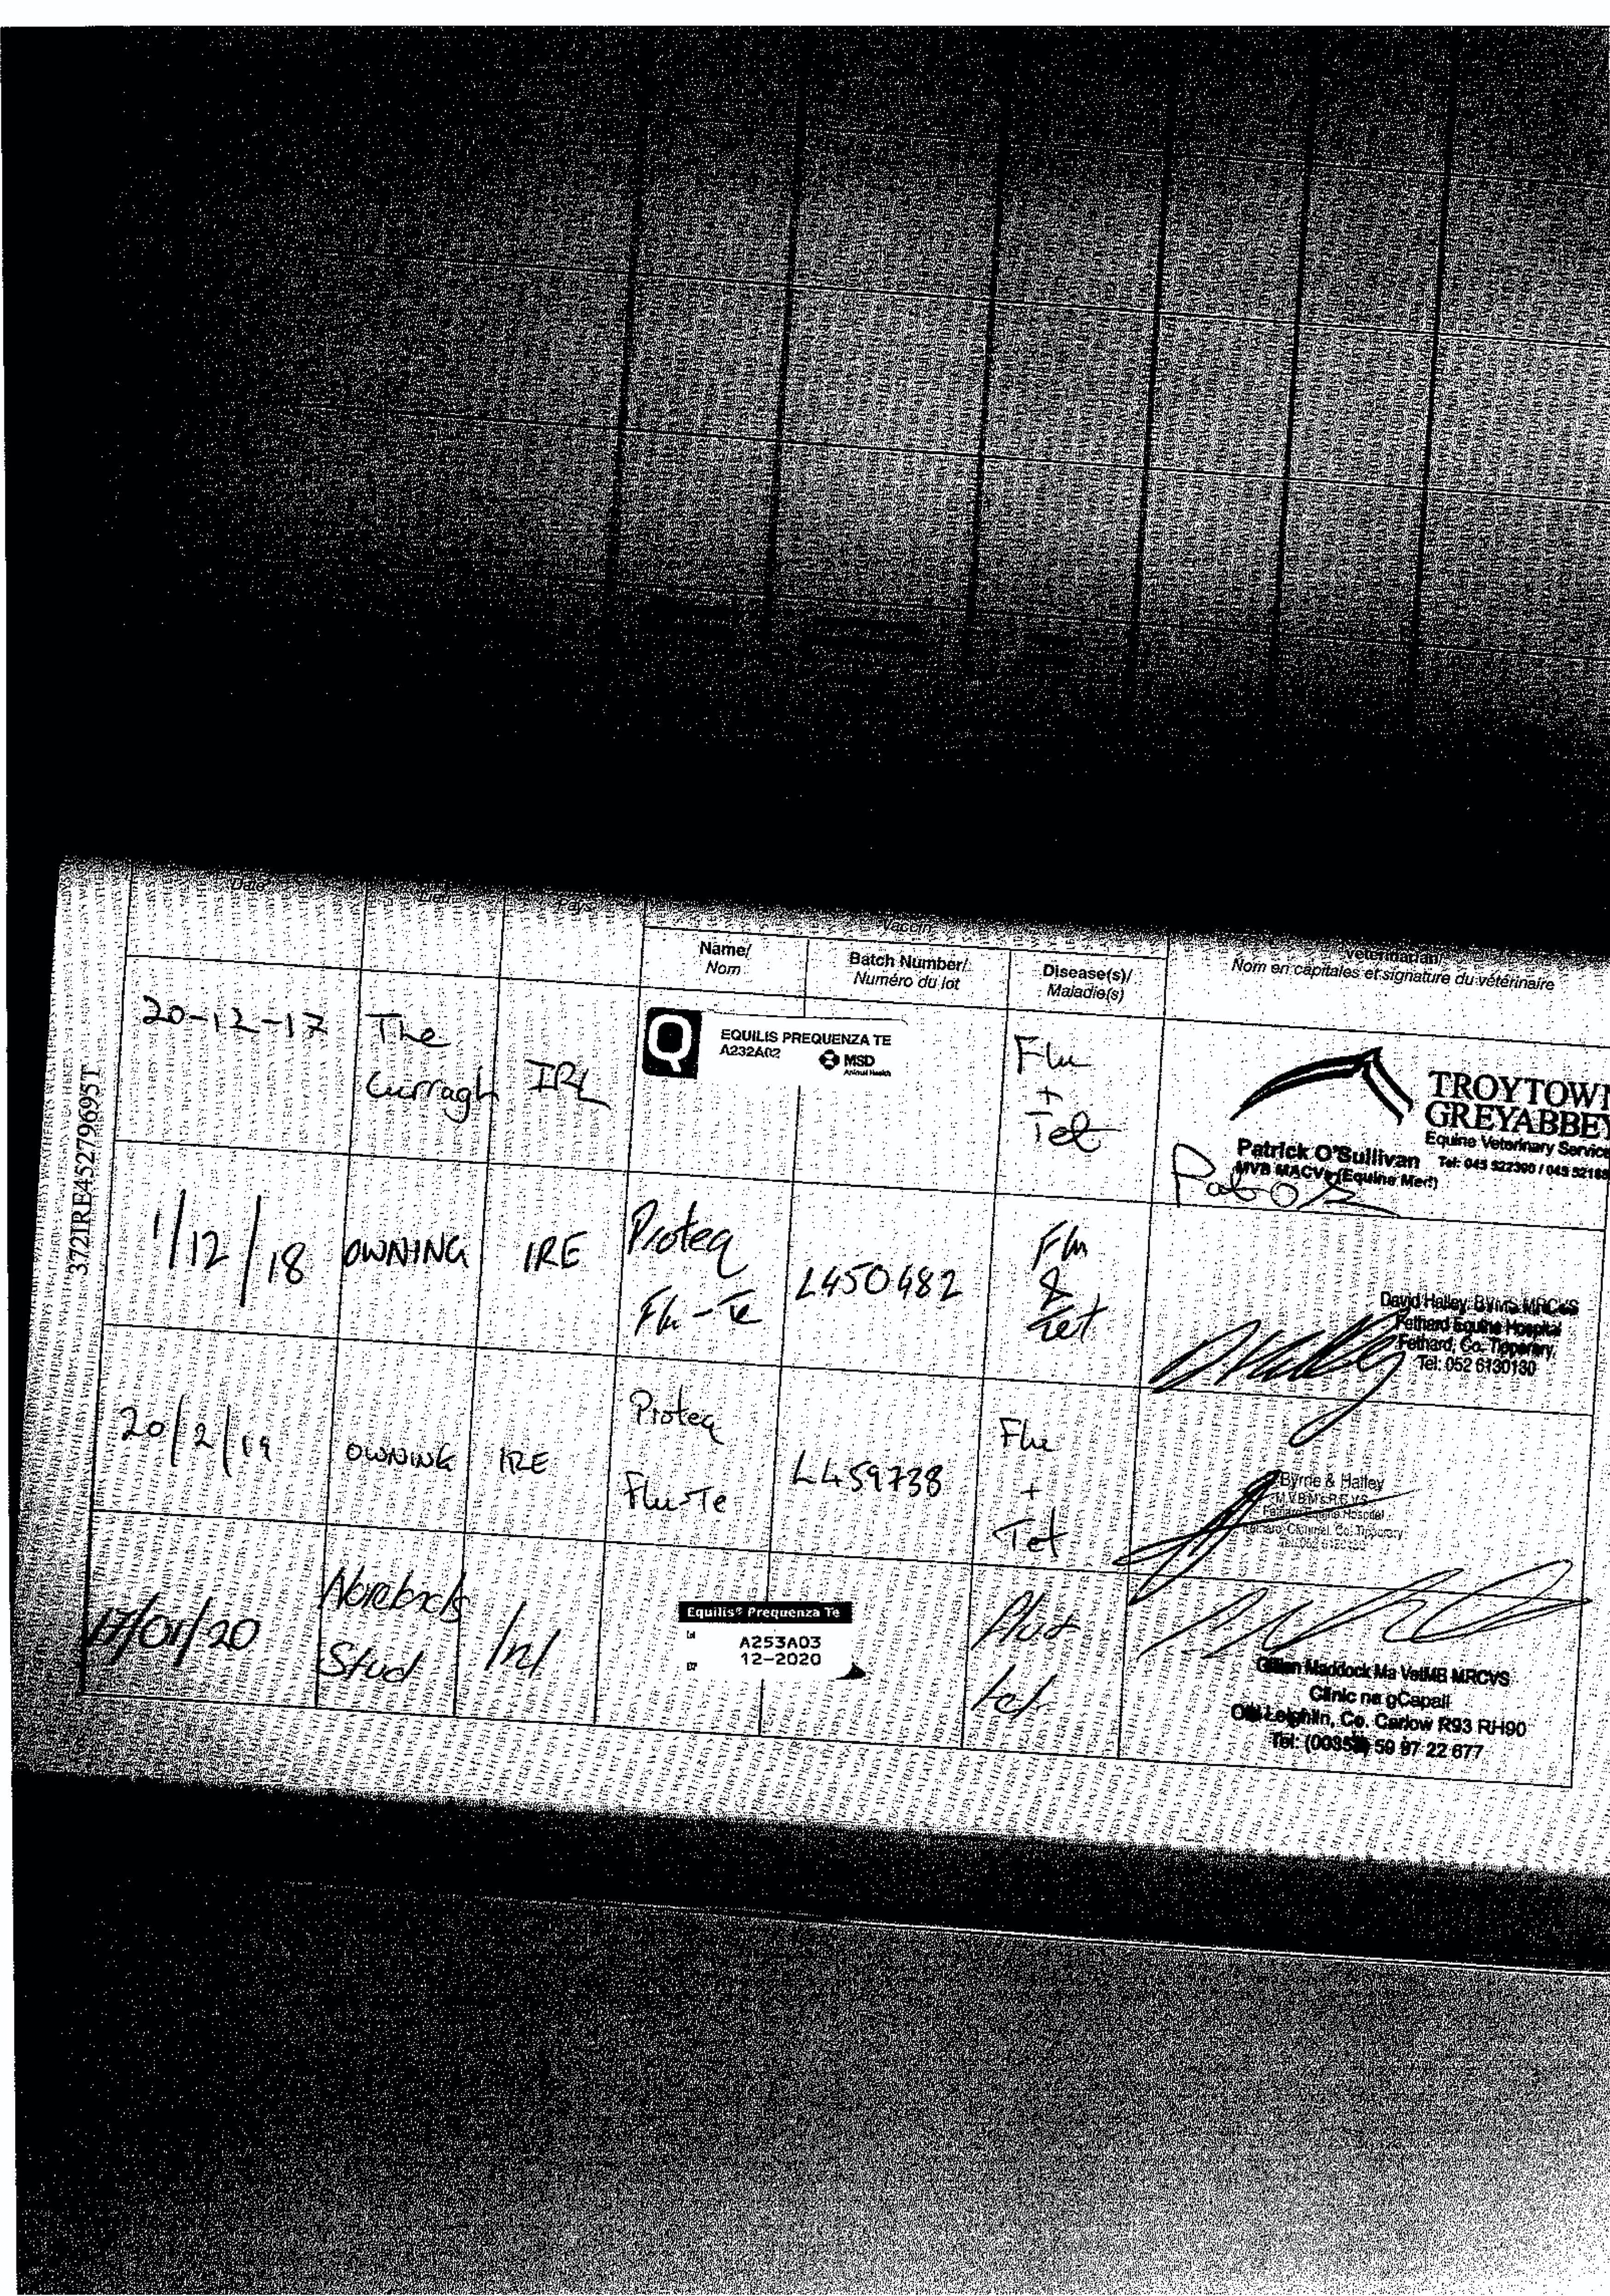 Date
Lieu
Pays
Vaccin
Veterinarian/
Name/
Nom
Batch Number/
Numéro du lot
Disease(s)/
Maladie(s)
Nom en capitales et signature du vétérinaire
372IRE452796951
20-12-17
The
Curragh
IRL
Q
EQUILIS PREQUENZA TE
A232A02
MSD
Animal Health
Flu
+
Tet
TROYTOWN
GREYABBEY
Equine Veterinary Service
Patrick O'Sullivan
MVB MACVs (Equine Med)
Tel: 045 522300 / 045 52168
1/12/18
OWNING
IRE
Proteq
Flu-Te
L450482
Flu
&
Tet
David Halley, BVMS MRCVS
Fethard Equine Hospital
Fethard, Co. Tipperary,
Tel: 052 6130130
20/2/19
OWNING
IRE
Proteq
Flu-Te
L459738
Flu
+
Tet
Byrne & Halley
M.V.B M.R.C.V.S
Fethard Equine Hospital
Fethard, Clonmel, Co. Tipperary
17/01/20
Stud
Irl
Equilis® Prequenza Te
Lot
A253A03
EXP
12-2020
Flu+
tet
Gillian Maddock Ma VetMB MRCVS
Clinic na gCapall
Old Leighlin, Co. Carlow R93 RH90
Tel: (00353) 59 97 22 677